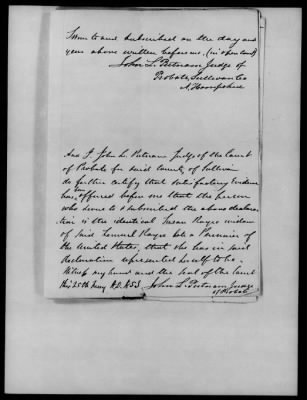 Sworn to and subscribed on the day and
year above written before me. (in open Court)
John L. Putnam Judge of
Probate, Sullivan Co
N. Hampshire
And I John L. Putnam Judge of the Court
of Probate for said County of Sullivan
do further certify that satisfactory Evidence
has offered before me that the person
who swore to & subscribed the above declara-
tion is the identical Susan widow
of said Lemuel late a Pensioner of
the United States, that she has in said
declaration represented herself to be.
Witness my hand and the seal of the Court
this 25th A.D. 1853. John L. Putnam Judge
of Probate